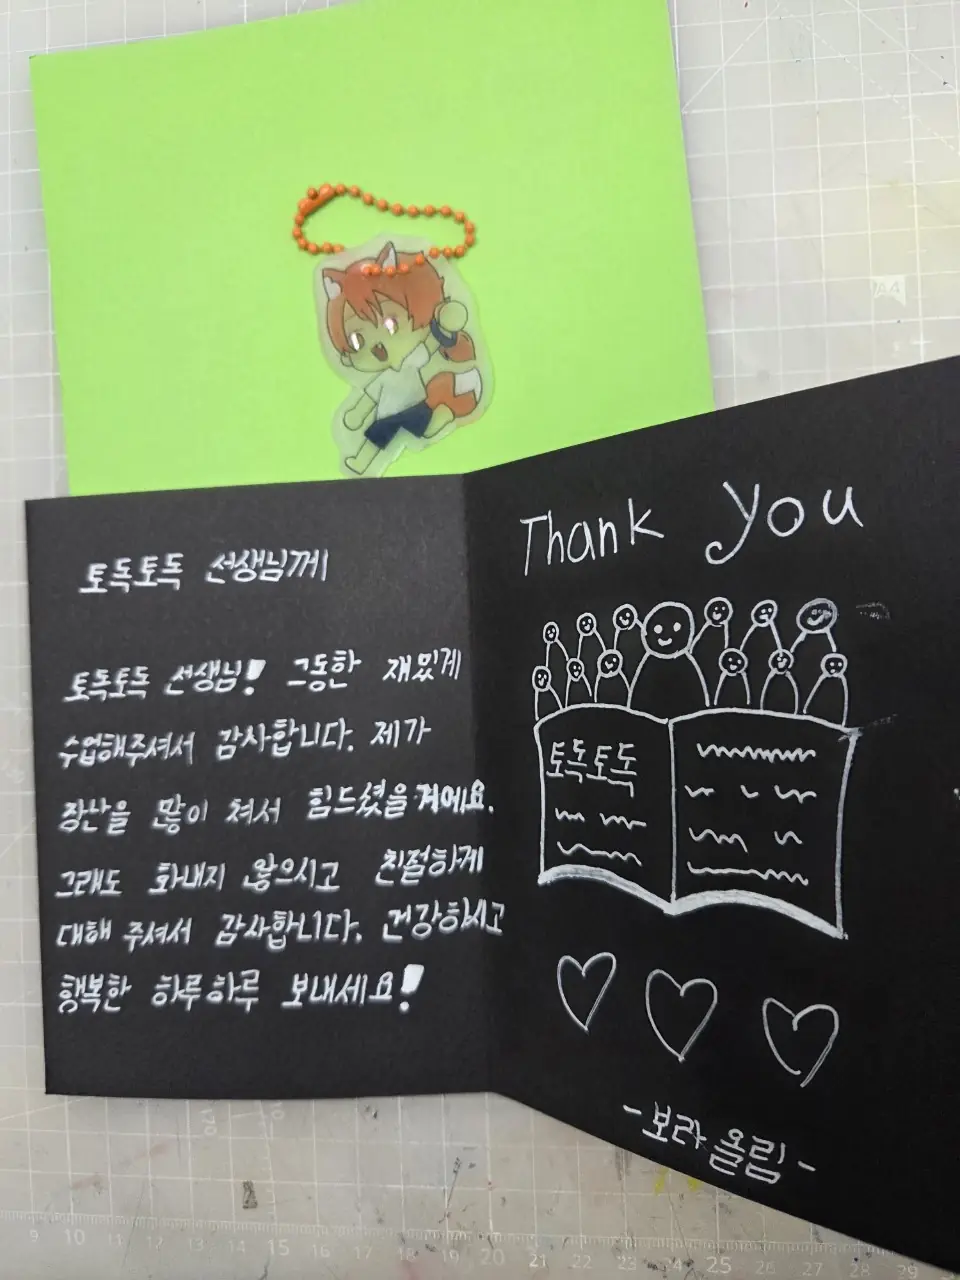 토독토독 선생님께
토독토독 선생님! 그동한 재밌게
수업해주셔서 감사합니다. 제가
장난을 많이 쳐서 힘드셨을 거에요.
그래도 화내지 않으시고 친절하게
대해 주셔서 감사합니다. 건강하시고
행복한 하루하루 보내세요!
Thank you
토독토독
-보라 올림-
A4
9 10 11 12 13 14 15 16 17 18 19 20 21 22 23 24 25 26 27 28 29